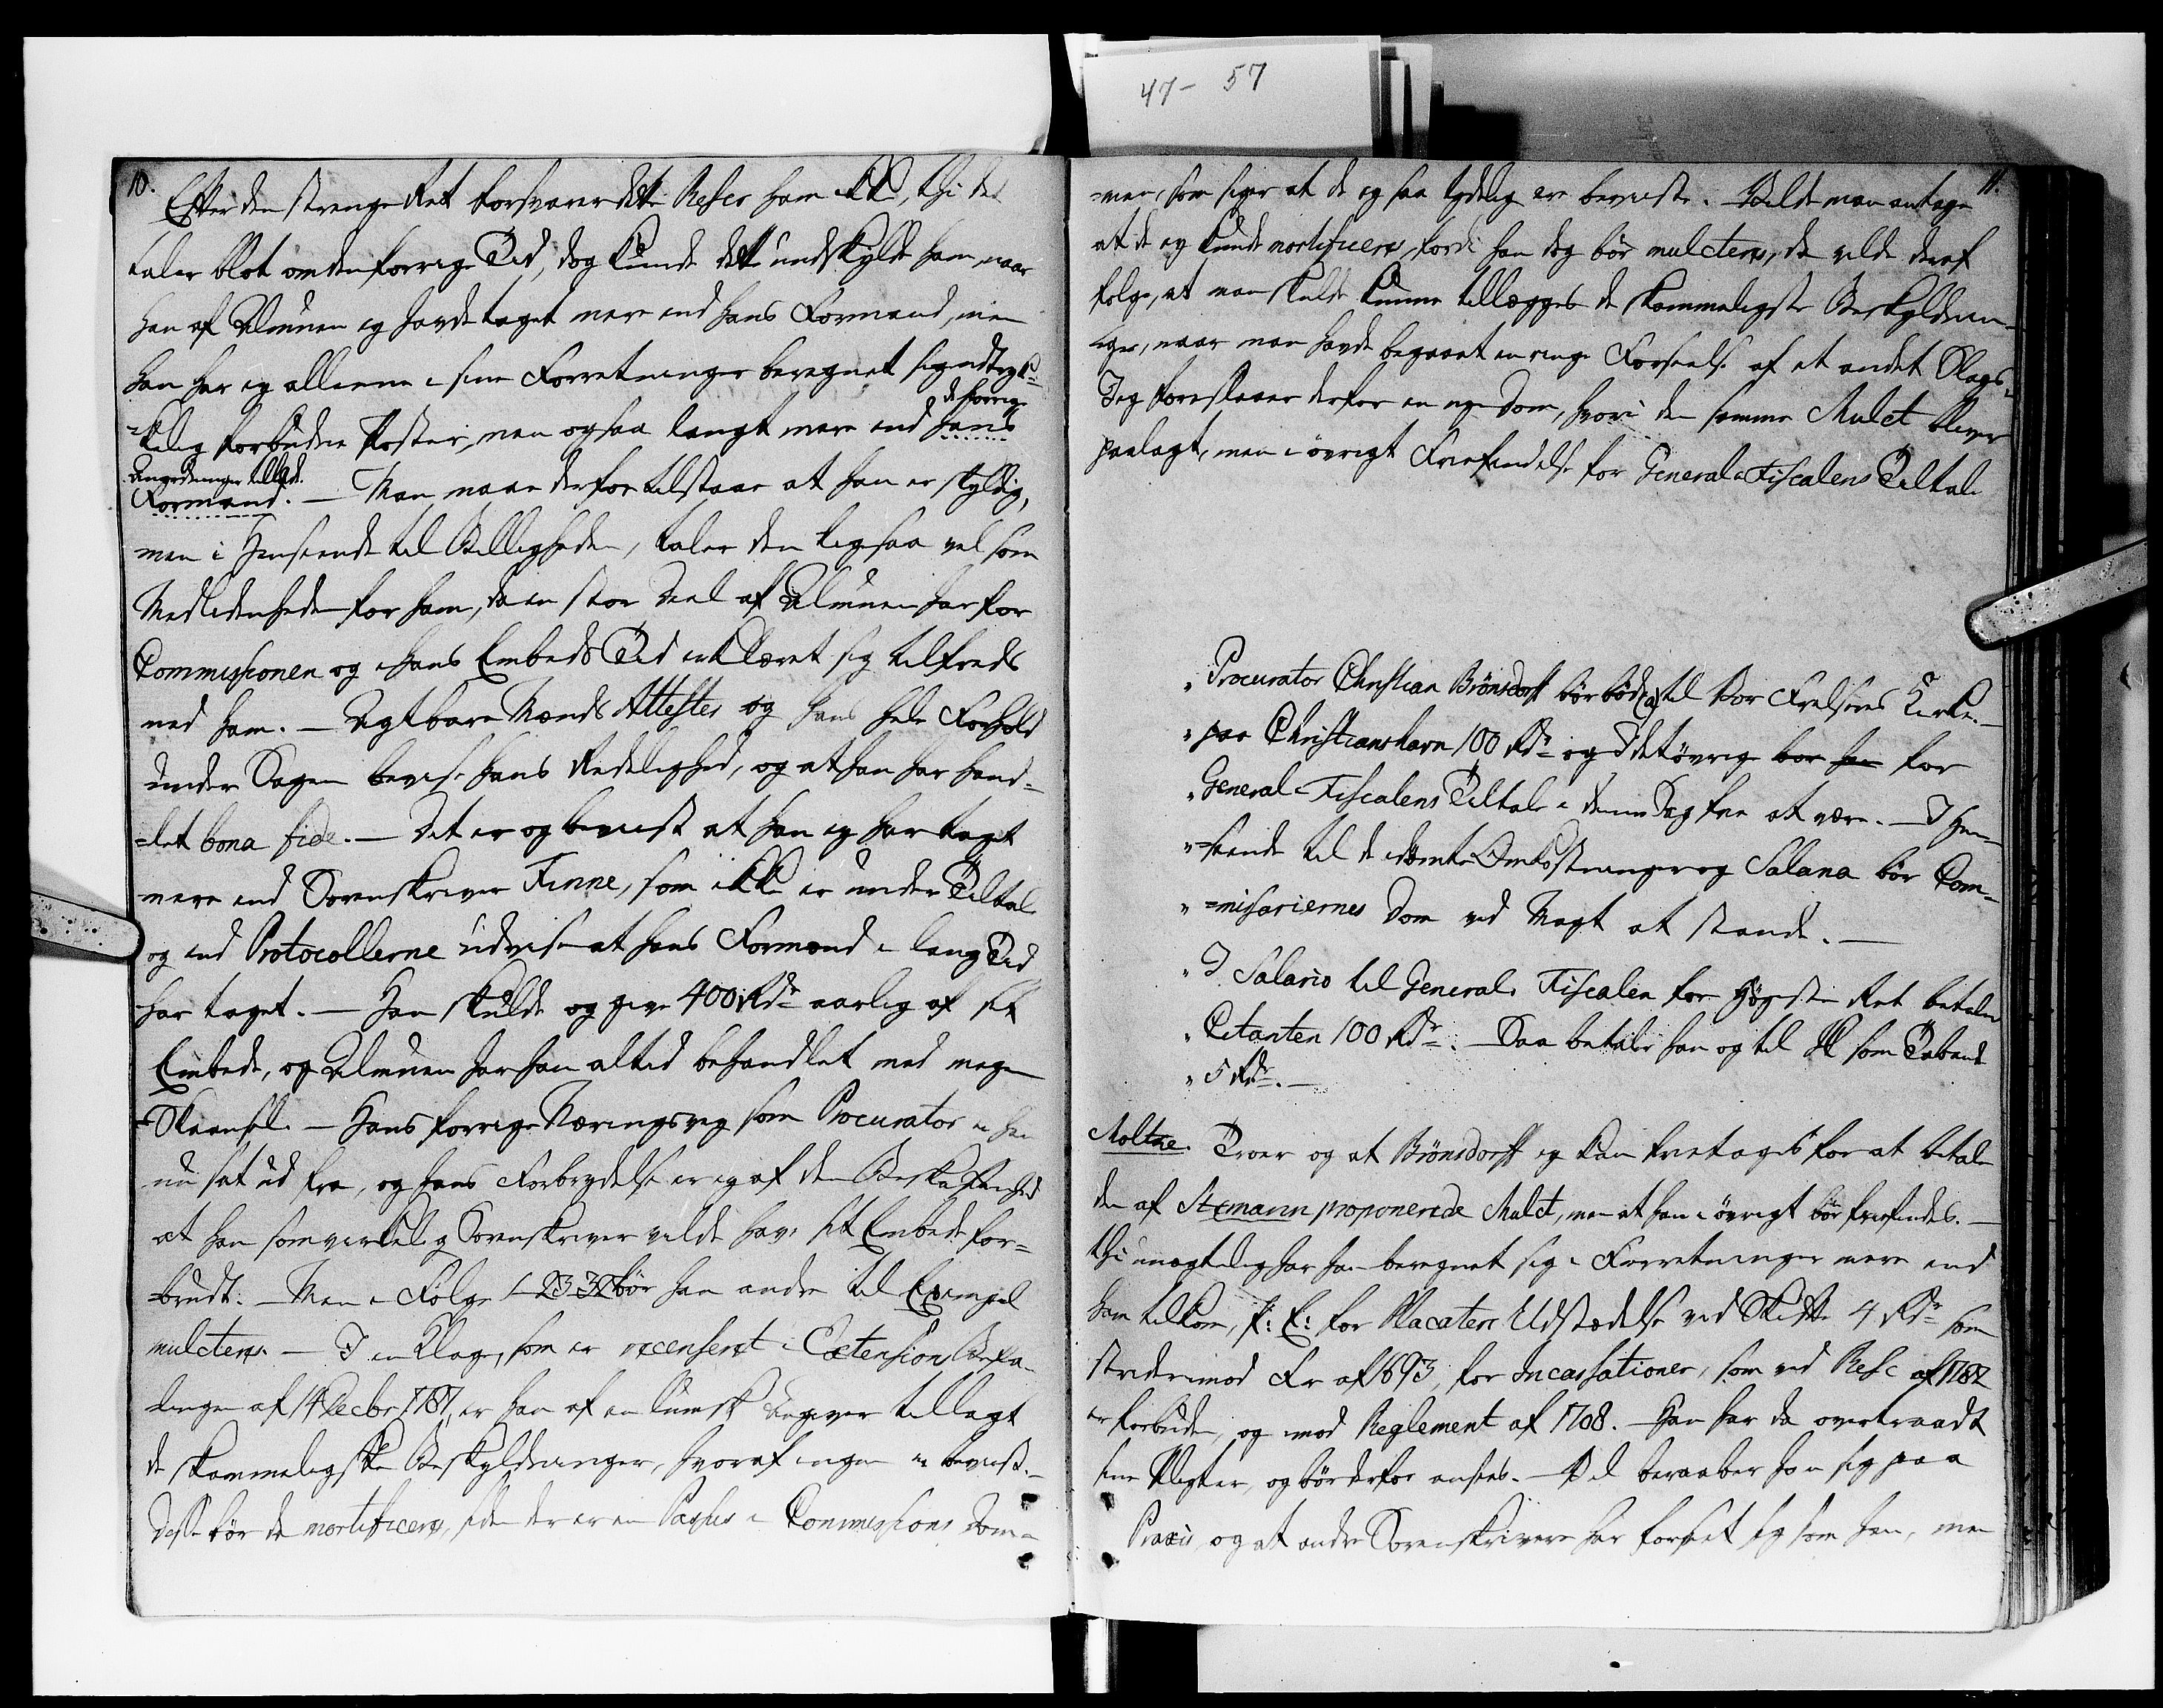 47- 57
10.
Efter den strenge Ret forsvarer dette Rescr ham ikke, thi det
taler blot om den forrige Tid, dog kunde dette undskylde ham, naar
han af Almuen ej havde taget mere end hans Formand, men
han har ej alleene i sine Forretninger beregnet sig udtryk=
de forrige
=kelig forbudne Poster, men ogsaa langt mere end hans
Anordninger tillod.
Formand. — Man maae derfor tilstaae at han er skyldig,
men i Henseende til Billigheden, taler den ligesaa vel som
Medlidenheden for ham, da en stor Deel af Almuen har for
Commissionen og i hans Embeds Tid erklæret sig tilfreds
med ham. — Agtbare Mænds Attester og hans hele Forhold
under Sagen bevise hans Redelighed, og at han har hand=
=let bona fide. — Det er og beviist at han ej har taget
mere end Sorenskriver Finne, som ikke er under Tiltale
og end Protocollerne udvise at hans Formænd i lang Tid
har taget. — Han skulde og give 400 Rdr aarlig af sit
Embede, og Almuen har han altid behandlet med megen
Skaansel. — Hans forrige Næringsvej som Procurator er han
nu sat ud fra, og hans Forbrydelse er ej af den Beskaffenhed
at han som virkelig Sorenskriver vilde have sit Embede for=
=brudt. — Men i Følge bør han andre til Exempel
mulcteres. — I en Klage, som er recenseret i Extensions Befa-
lingen af 14 Decbr 1787, er han af en lumsk Angiver tillagt
de skammeligste Beskyldninger, hvoraf ingen er beviist. —
Disse bør da mortificeres, siden der er en Passus i Commissions Dom=
11.
=men, som siger at de ej saa tydelig ere beviiste. — Vilde man antage
at de ej kunde mortificeres, fordi han dog bør mulcteres, da vilde deraf
følge, at man skulde kunne tillægges de skammeligste Beskyldnin-
=ger, naar man havde begaaet en ringe Forseelse af et andet Slags.
Jeg foreslaaer derfor en nye Dom, hvori den samme Mulct bliver
paalagt, men i øvrigt Friefindelse for General-Fiscalens Tiltale
„ Procurator Christian Brönsdorff bør bøde til Vor Frelsers Kirke
„ paa Christianshavn 100 Rdr og I det øvrige bør han for
„ General-Fiscalens Tiltale i denne Sag frie at være. — I Hen=
„ =seende til de idømte Omkostninger og Salaria bør Com=
„ =missariernes Dom ved Magt at stande. —
„ I Salario til General Fiscalen for Høyeste Ret betaler
„ Citanten 100 Rdr. — Saa betaler han og til JK som Taband
„ 5 Rdr. —
Moltke. Troer og at Brönsdorff ej kan fritages for at betale
den af Stemann proponerede Mulct, men at han i øvrigt bør friefindes. —
thi unægtelig har han beregnet sig i Forretninger mere end
ham tilkom, f: E: for Placaters Udstædelse ved Skifte 4 Rdr som
strider imod Fr af 1693, for Incassationer, som ved Resc af 1782
er forbuden, og imod Reglement af 1708. — Han har da overtraadt
sine Pligter, og bør derfor ansees. — Vel beraaber han sig paa
Praxis, og at andre Sorenskrivere har forseet sig som han, men